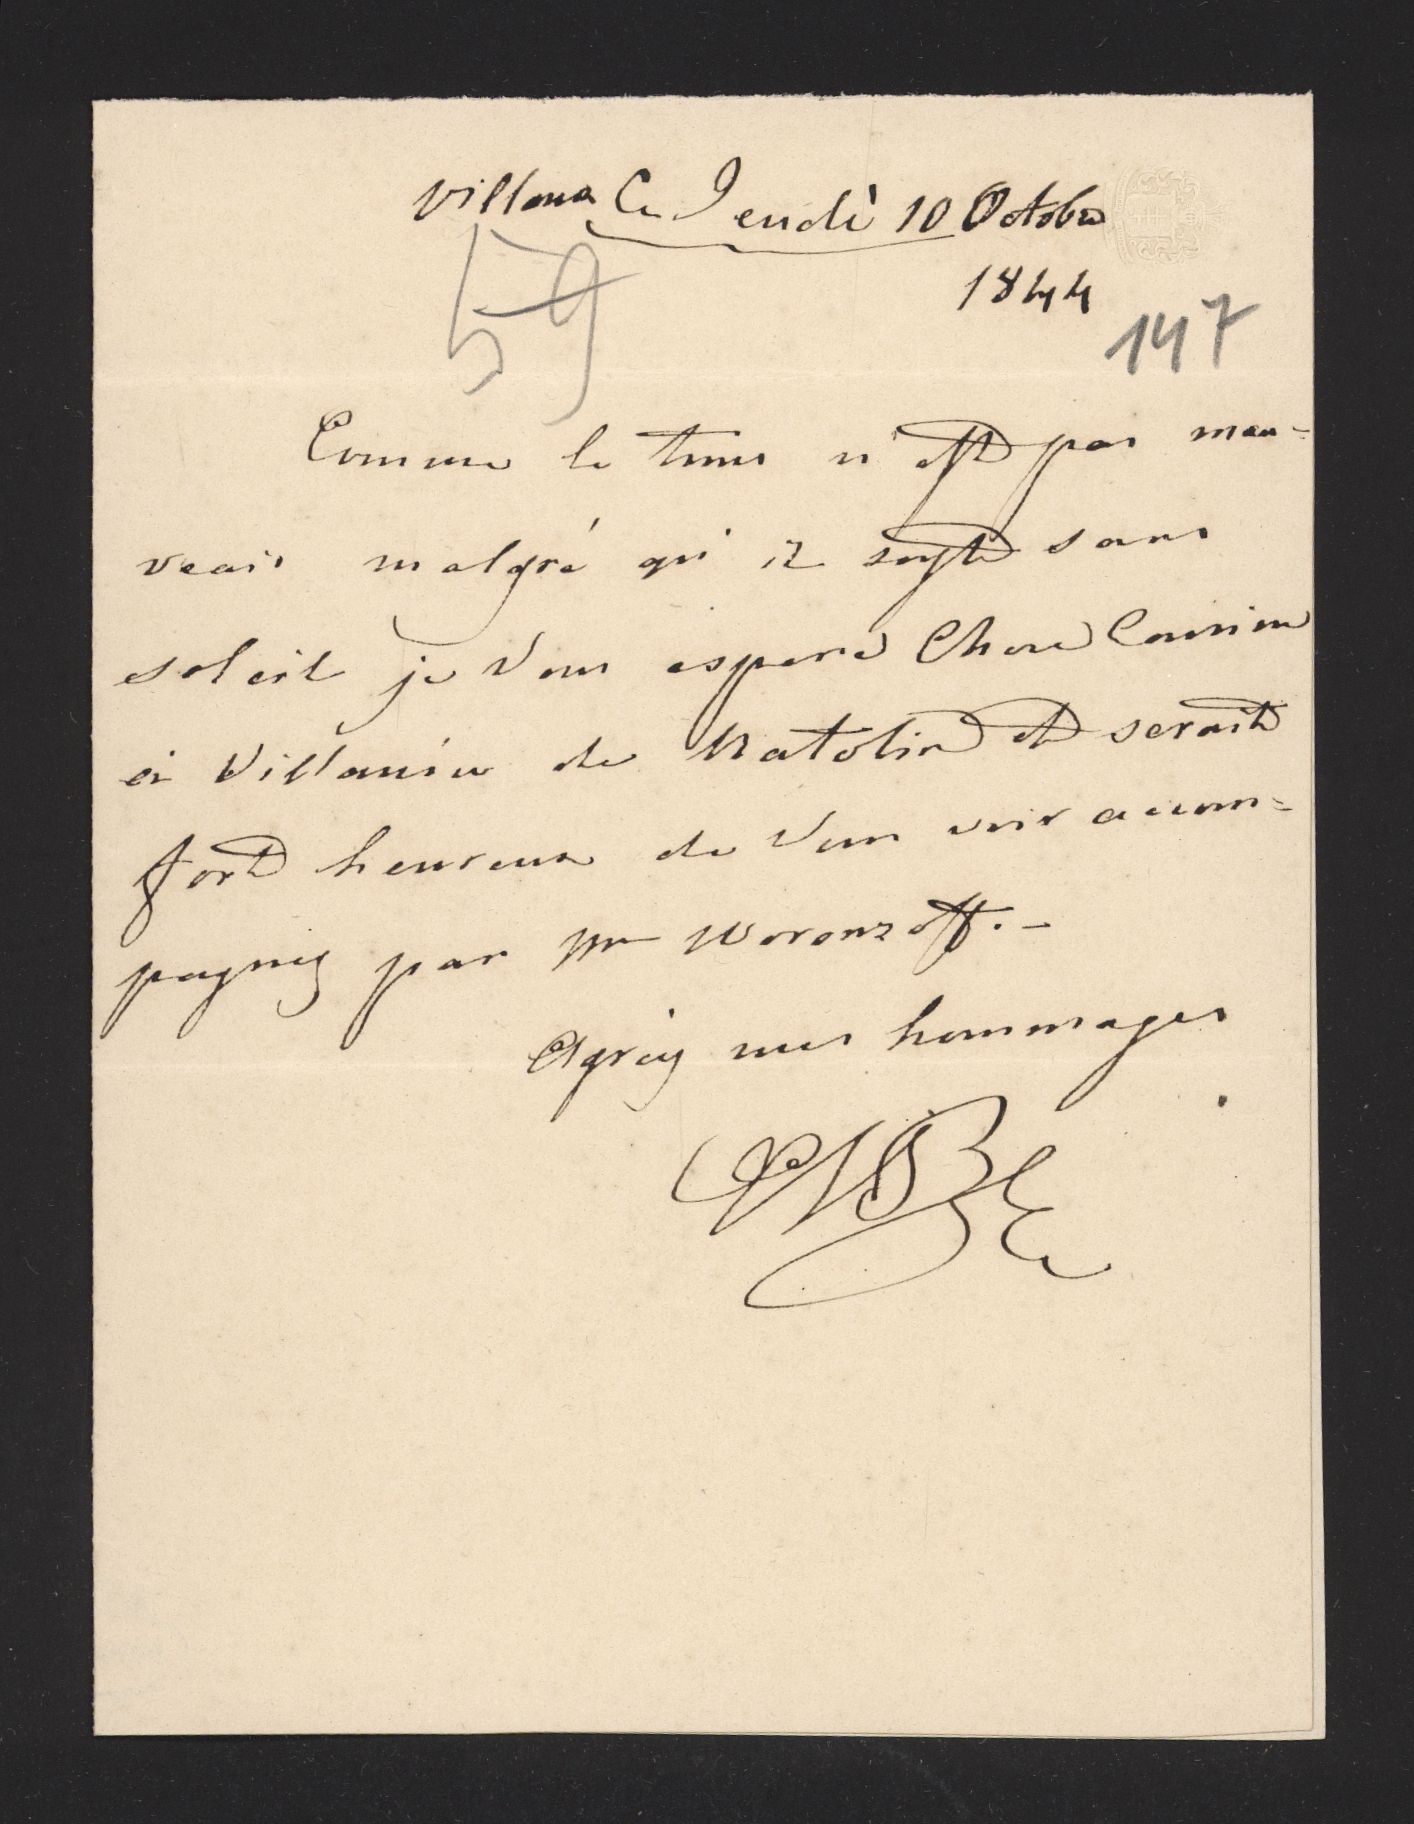 Villona Ce Jeudi 10 Octobre
1844
59
147
Comme le tems n'est pas mau-
vais malgré qu'il soyt sans
soleil je Vous espere Chere Cousine
à Villanów de Natolin et serait
fort heureux de Vous voir accom=
pagnés par Mr Woronzoff.-
Agréez mes hommages